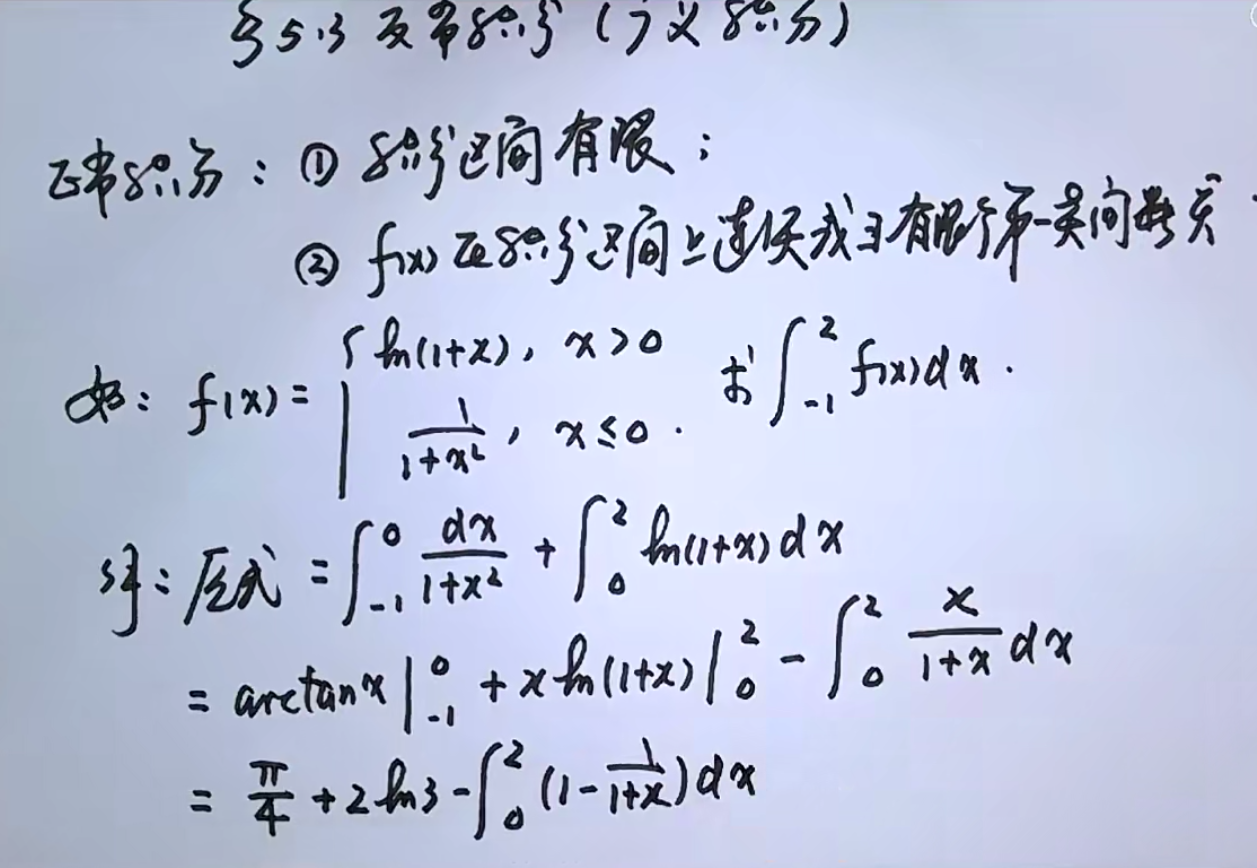 §5.3 反常积分（广义积分）
正常积分：① 积分区间有限；
② f(x)在积分区间上连续或有有限个第一类间断点.
如：f(x) = { ln(1+x), x>0
1/(1+x²), x≤0. 求∫_{-1}^{2} f(x)dx.
解：原式 = ∫_{-1}^{0} dx/(1+x²) + ∫_{0}^{2} ln(1+x)dx
= arctanx|_{-1}^{0} + xln(1+x)|_{0}^{2} - ∫_{0}^{2} x/(1+x) dx
= π/4 + 2ln3 - ∫_{0}^{2} (1 - 1/(1+x))dx